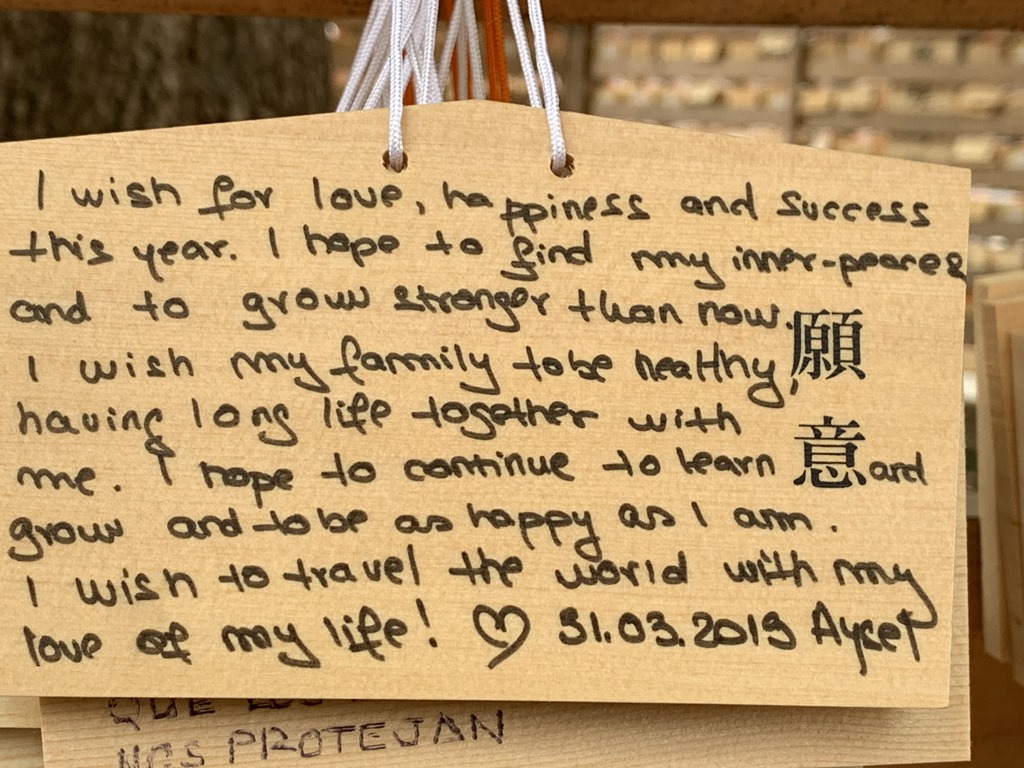 I wish for love, happiness and success
this year. I hope to find my inner-peace
and to grow stronger than now.
I wish my family to be healthy,
having long life together with
me. I hope to continue to learn and
grow and to be as happy as I am.
I wish to travel the world with my
love of my life! ♡ 31.03.2019 Aysel
願
意
QUE
NOS PROTEJAN